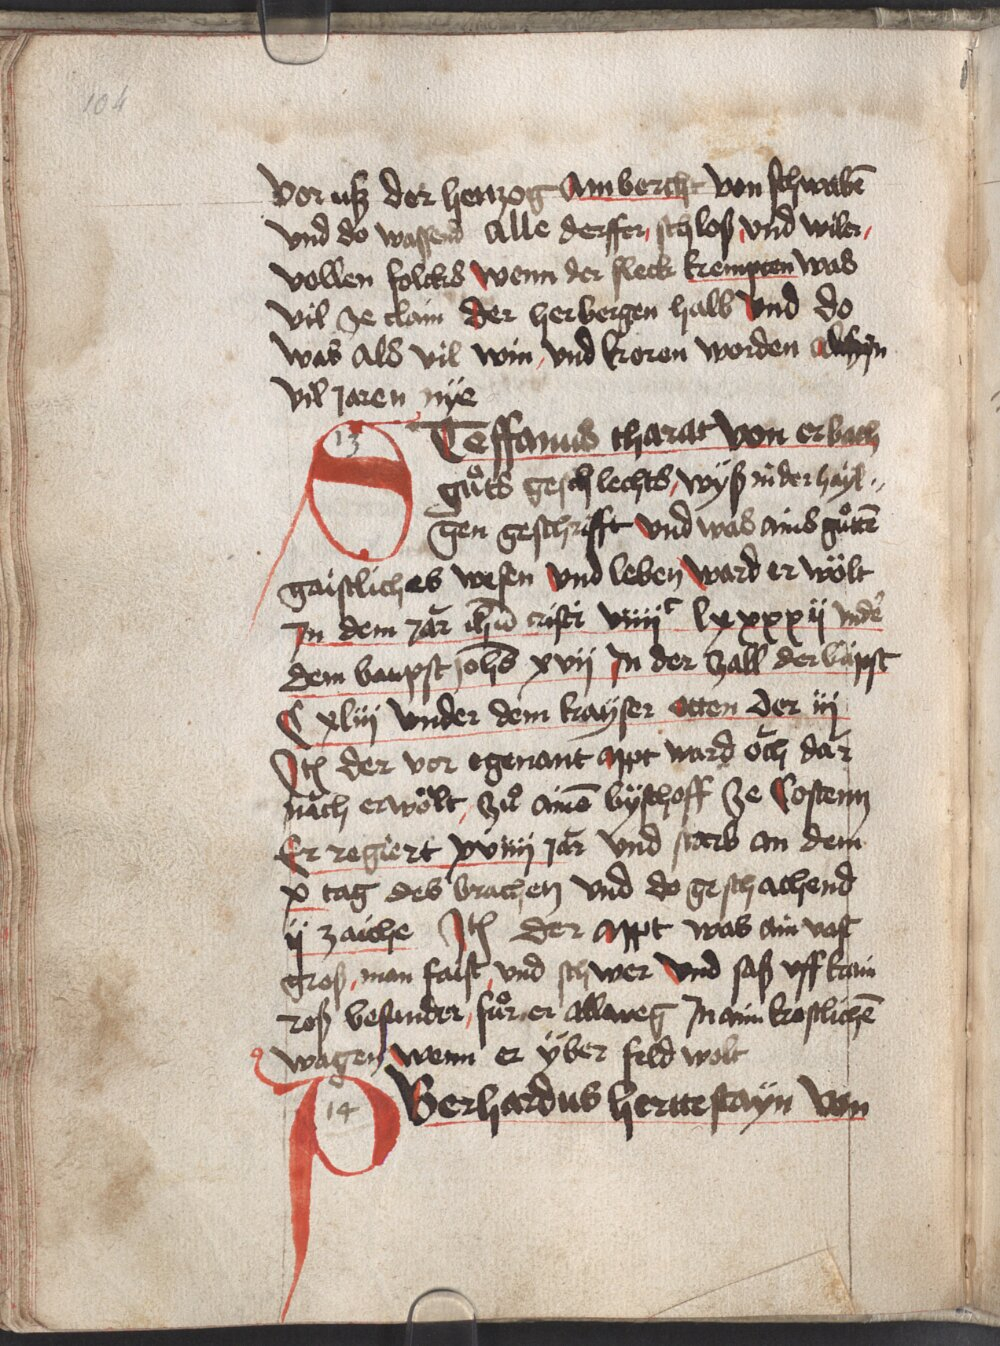 104
vor uß der hertzog Ambercht von schwabē
vnd do wassend Alle derffer, schloß, vnd wiler,
vollen folcks Wenn der fleck krempten was
vil ze clain der herbergen halb Vnd do
was als vil win, vnd kroren worden
vil jaren nÿe
13 Steffanus tharat von erbach
gůts geschlechts, wÿß in der hayl-
gen geschrifft Vnd was ains gůttē
gaistliches wesen Vnd leben Ward er wölt
In dem Jar ihū cristi viiiiᶜ lxxxxii vnder
dem baupst johēs xvii In der Zall der bäpst
C xliii vnder dem kayser otten der iii
Itē der vor egenant appt ward och dar
nach erwölt, zů aimē byschoff ze Costentz
Er regiert xviiii jar vnd starb an dem
x tag des brachetz vnd do geschachend
ii zaiche Itē der appt was ain vast
groß, man faist, vnd schwer Vnd saß vff kain
roß besunder, fůr er allweg In aim kostlichē
wagen Wenn er ÿber feld wolt
14 Berhardus herttestayn Von